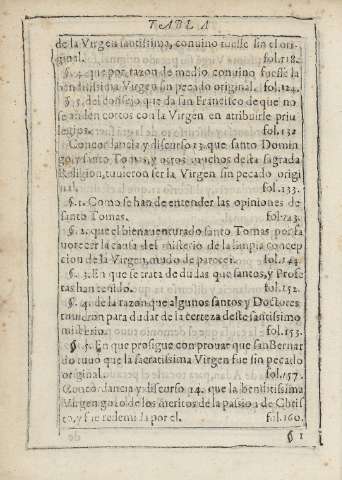 TABLA
de la Virgen santissima, conuino fuesse sin el ori-
ginal. fol.118.
§. 4. que por razon de medio conuino fuesse la
benditissima Virgen sin pecado original. fol.124.
§. 5. del consejo que da san Francisco de que no
se anden cortos con la Virgen en atribuirle priui
legios. fol.132
Concordancia y discurso 13. que santo Domin
go, y santo Tomas, y otros muchos desta sagrada
Religion, tuuieron ser la Virgen sin pecado origi
nal. fol.133.
§. 1. Como se han de entender las opiniones de
santo Tomas. fol.143.
§. 2. que el bienauenturado santo Tomas por fa
uorecer la causa del misterio de la limpia concep
cion de la Virgen, mudo de parecer. fol.144
§. 3. En que se trata de dudas que santos, y Profe
tas han tenido. fol.152.
§. 4. de la razon que algunos santos y Doctores
tuuieron para dudar de la certeza deste santissimo
misterio. fol.153.
§. 5. En que prosigue con prouar que san Bernar
do tuuo que la sacratissima Virgen fue sin pecado
original. fol.157.
Concordancia y discurso 14. que la benditissima
Virgen gozo de los meritos de la passion de Chris
to, y fue redemida por el. fol.160.
§ 1